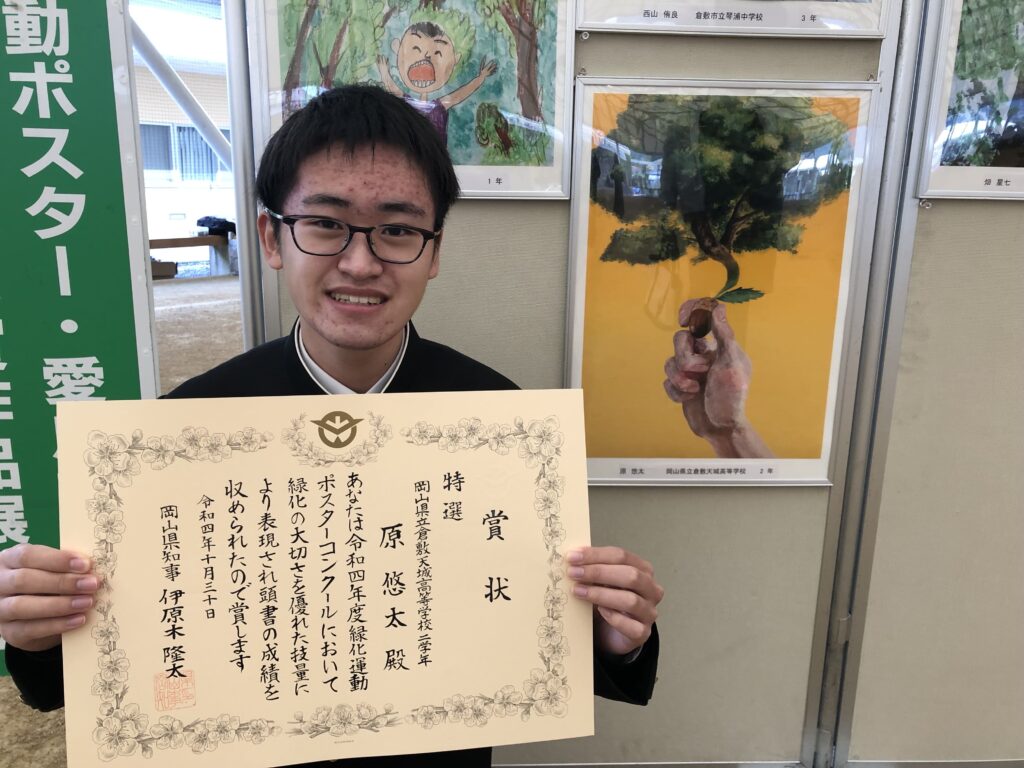 動ポスター・愛
品展
1 年
西山 侑良 倉敷市立琴浦中学校 3 年
原 悠太 岡山県立倉敷天城高等学校 2 年
畑 星七
賞状
特選
岡山県立倉敷天城高等学校二学年
原 悠太 殿
あなたは令和四年度緑化運動
ポスターコンクールにおいて
緑化の大切さを優れた技量に
より表現され頭書の成績を
収められたので賞します
令和四年十月三十日
岡山県知事 伊原木 隆太